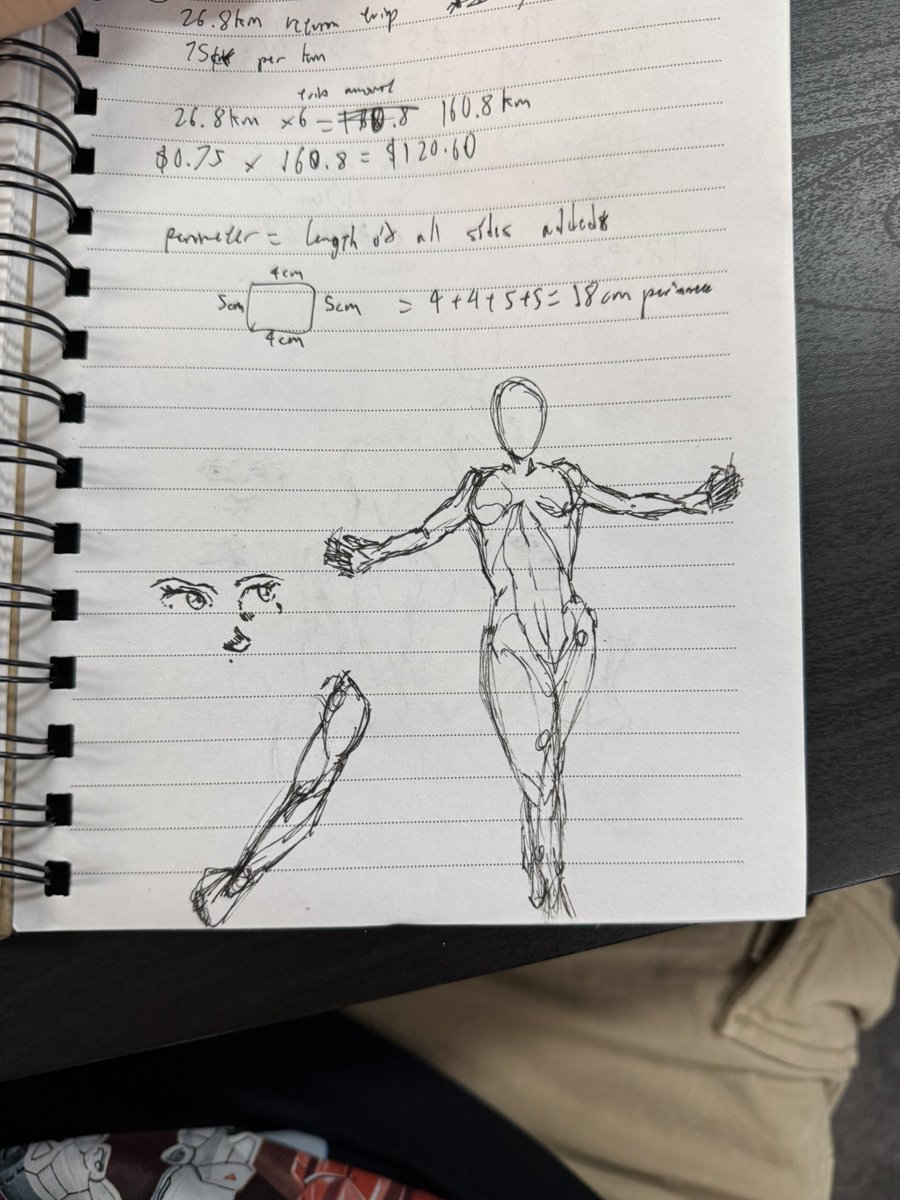 26.8km return trip
75 per km
trips amount
26.8km ×6 = 160.8 km
$0.75 × 160.8 = $120.60
perimeter = length of all sides added
4cm
5cm 5cm = 4+4+5+5= 18cm perimeter
4cm